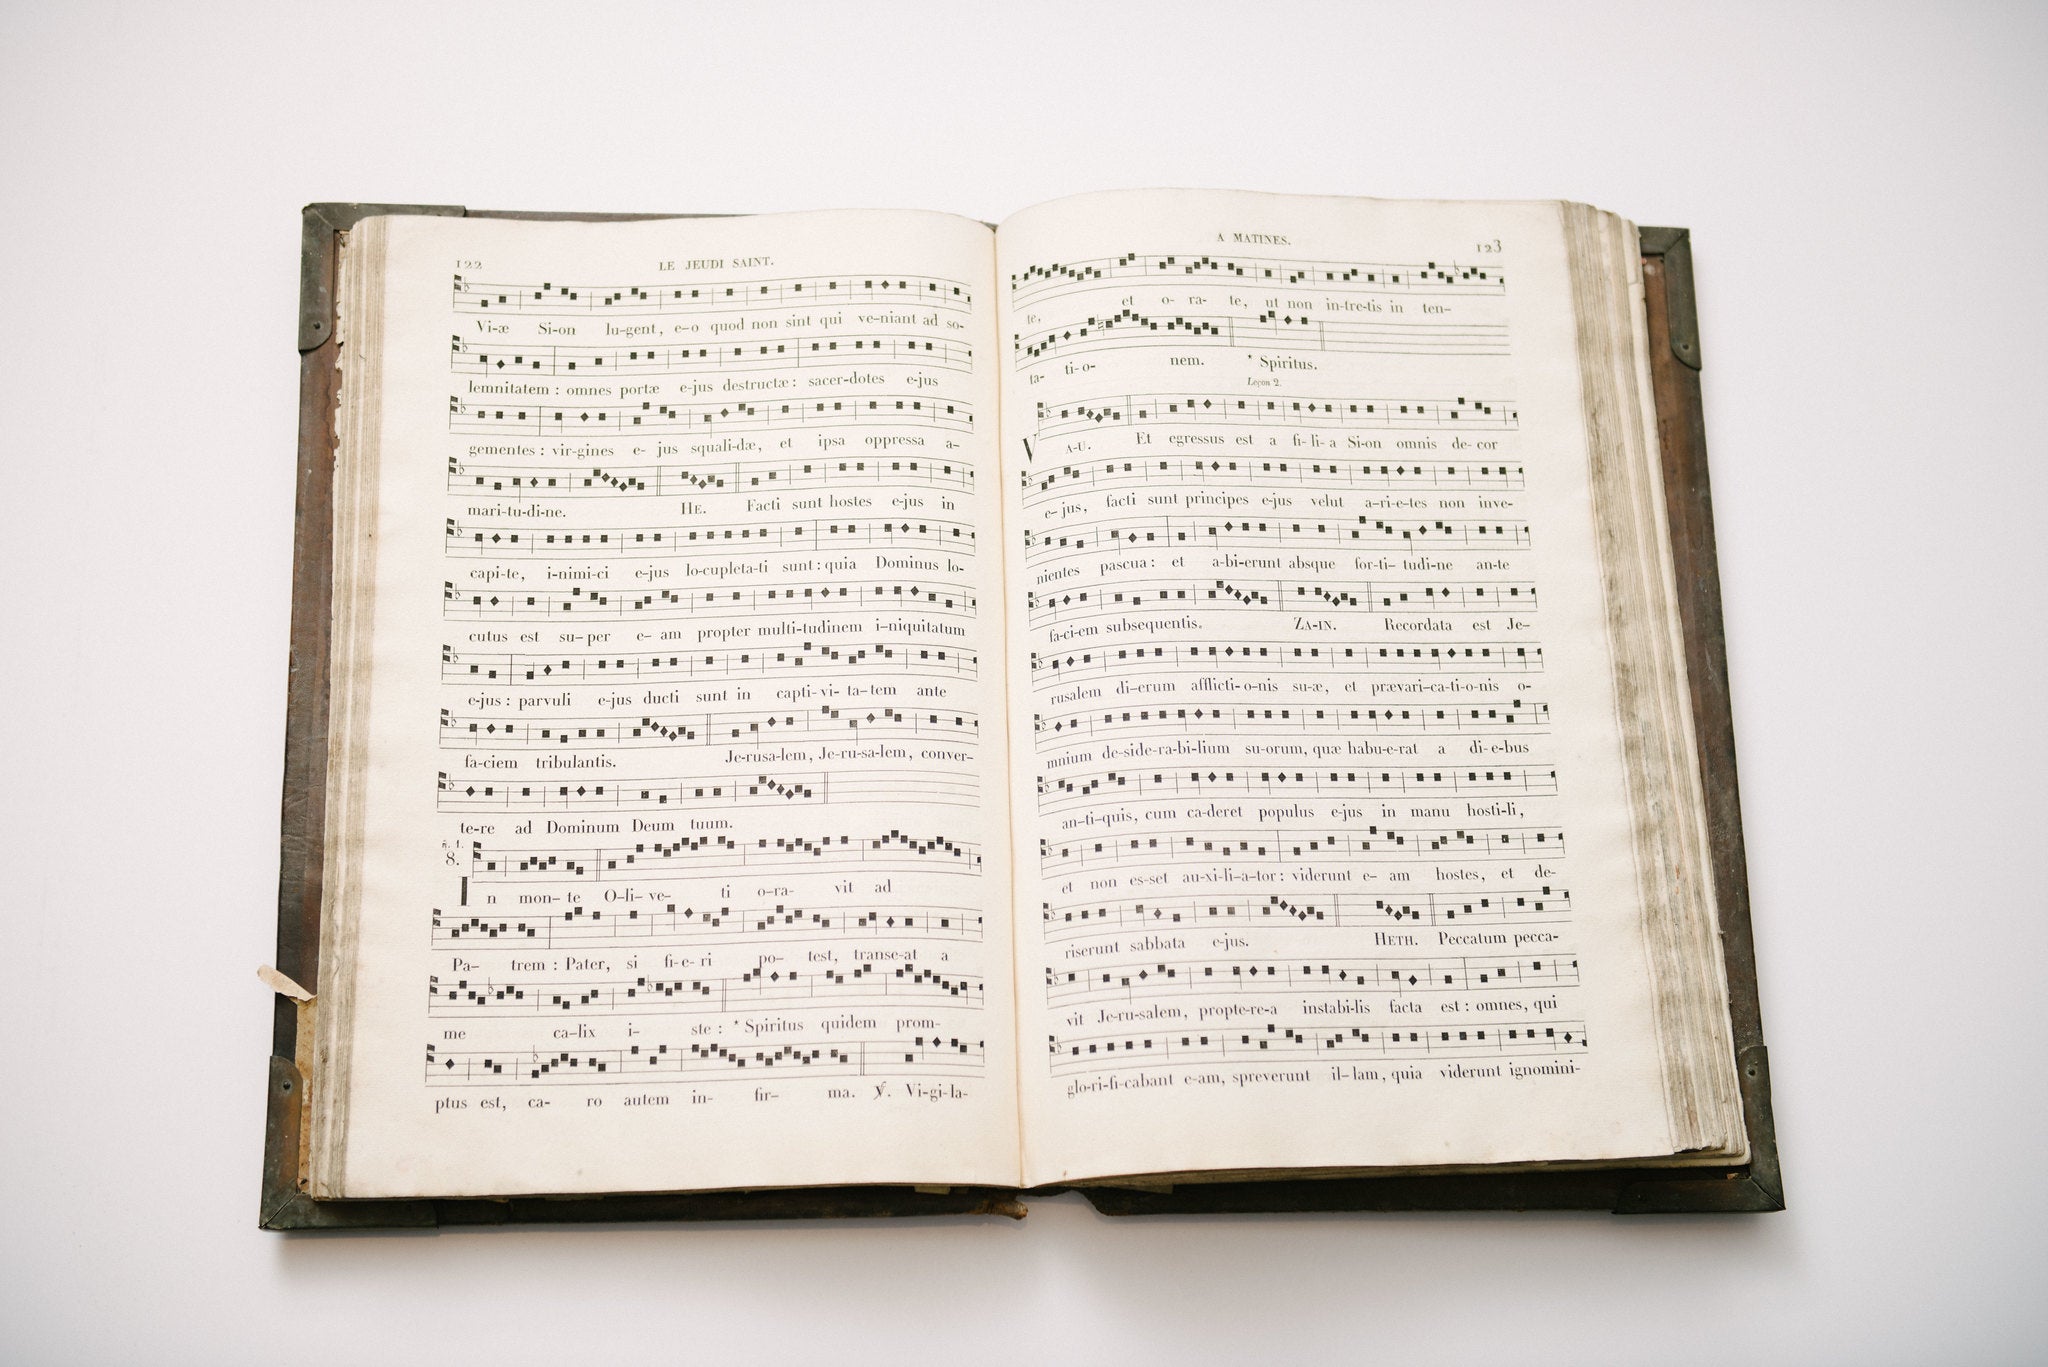 122
LE JEUDI SAINT.
Vi-æ Si-on lu-gent, e-o quod non sint qui ve-niant ad so-
lemnitatem : omnes portæ e-jus destructæ : sacer-dotes e-jus
gementes : vir-gines e- jus squali-dæ, et ipsa oppressa a-
mari-tu-di-ne. HE. Facti sunt hostes e-jus in
capi-te, i-nimi-ci e-jus lo-cupleta-ti sunt : quia Dominus lo-
cutus est su-per e- am propter multi-tudinem i-niquitatum
e-jus : parvuli e-jus ducti sunt in capti-vi-ta-tem ante
fa-ciem tribulantis. Je-rusa-lem, Je-ru-sa-lem, conver-
te-re ad Dominum Deum tuum.
8.
In mon-te O-li-ve- ti o-ra- vit ad
Pa- trem : Pater, si fi-e-ri po- test, transe-at a
me ca-lix i- ste : * Spiritus quidem prom-
ptus est, ca- ro autem in- fir- ma. ℣. Vi-gi-la-
A MATINES.
123
te, et o- ra- te, ut non in-tre-tis in ten-
ta- ti-o- nem. * Spiritus.
Leçon 2.
VA-U. Et egressus est a fi-li-a Si-on omnis de-cor
e-jus, facti sunt principes e-jus velut a-ri-e-tes non inve-
nientes pascua : et a-bi-erunt absque for-ti- tudi-ne an-te
fa-ci-em subsequentis. ZA-IN. Recordata est Je-
rusalem di-erum afflicti-o-nis su-æ, et prævari-ca-ti-o-nis o-
mnium de-side-ra-bi-lium su-orum, quæ habu-e-rat a di-e-bus
an-ti-quis, cum ca-deret populus e-jus in manu hosti-li,
et non es-set au-xi-li-a-tor : viderunt e- am hostes, et de-
riserunt sabbata e-jus. HETH. Peccatum pecca-
vit Je-ru-salem, propte-re-a instabi-lis facta est : omnes, qui
glo-ri-fi-cabant e-am, spreverunt il-lam, quia viderunt ignomini-